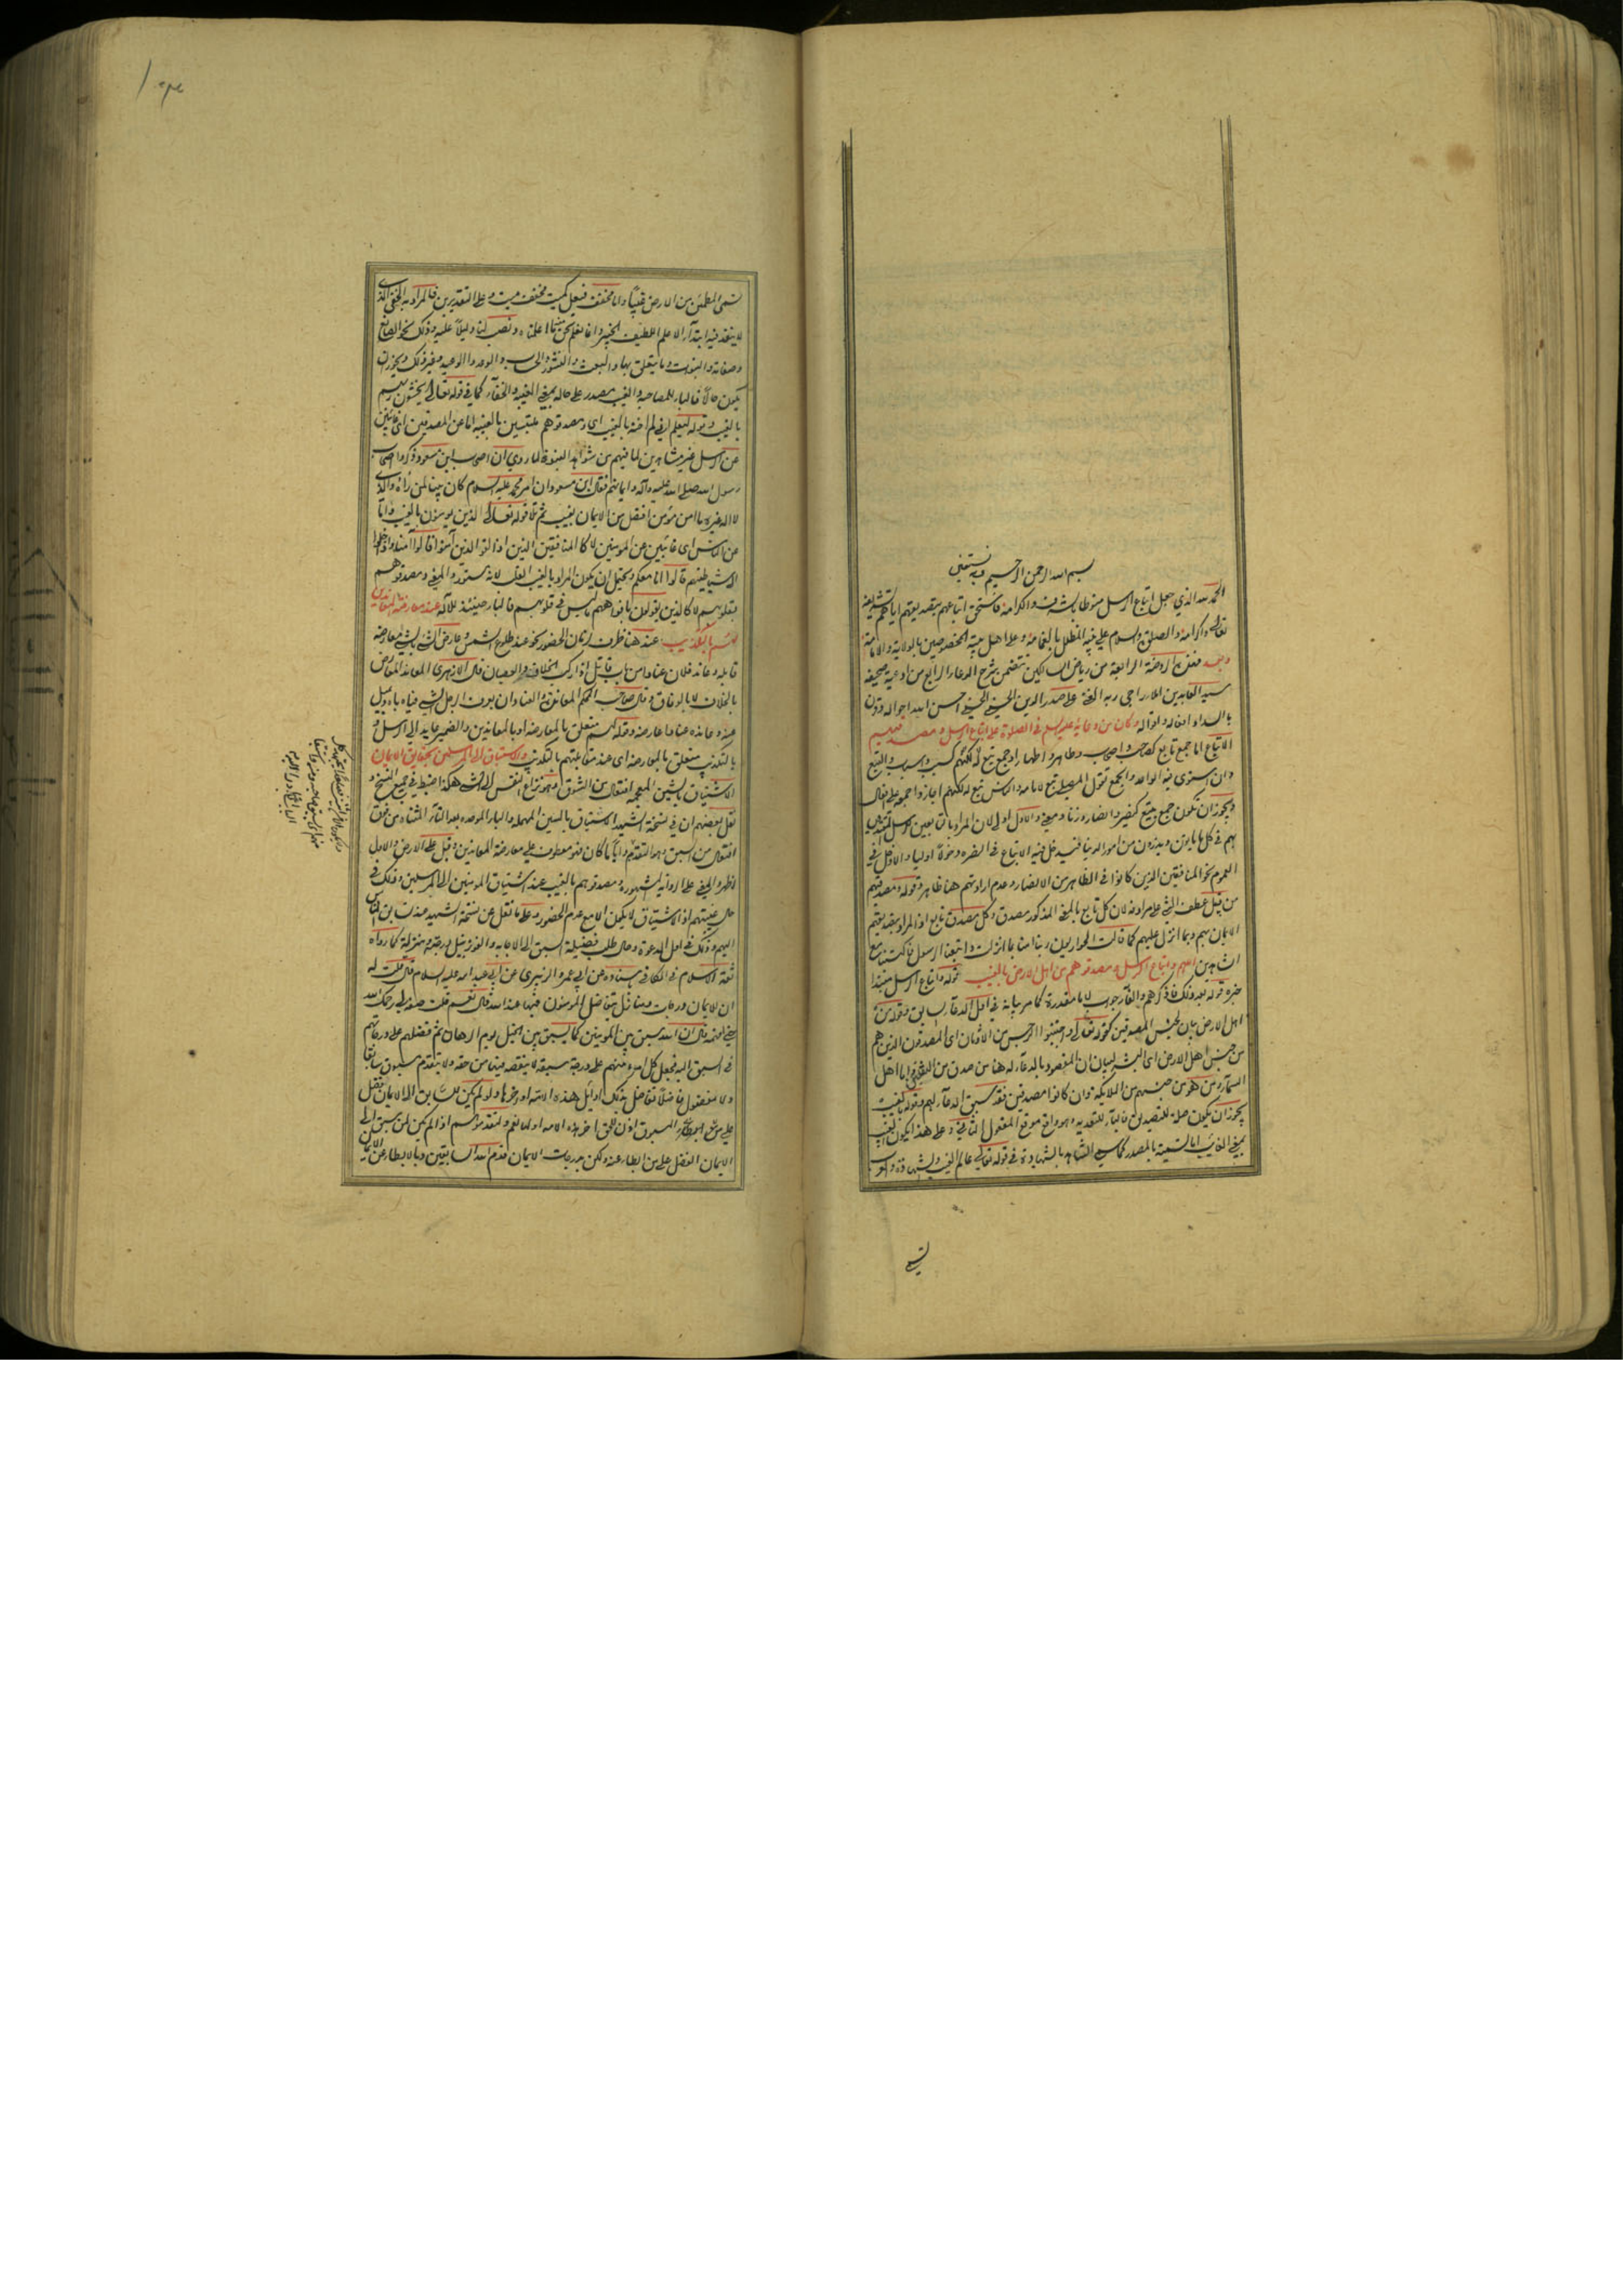 بسم الله الرحمن الرحيم وبه نستعين
الحمد لله الذي جعل اتباع الرسل منوطا بالشرف والكرامة فاستحق اتباعهم بتصديقهم اياهم تشريفه
تعالى واكرامه والصلوة والسلام على نبيه المظلل بالغمامة وعلى اهل بيته المخصوصين بالولاية والامامة
وبعد فهذه الروضة الرابعة من رياض السالكين تتضمن شرح الدعاء الرابع من ادعية صحيفة
سيد العابدين املاء راجي ربه الغني علي صدر الدين الحسيني الحسني احسن الله احواله وقرن
بالسداد افعاله واقواله وكان من دعائه عليه السلم في الصلوة على اتباع الرسل ومصدقيهم
الاتباع اما جمع تابع كصاحب واصحاب وطاهر واطهار او جمع تبع له لكنهم كسبب واسباب والتبع
وان استوى فيه الواحد والجمع تقول المصلي تبع لامامه والناس تبع له لكنهم اجازوا جمعه على افعال
ويجوز ان تكون جمع تبيع كنصير وانصار وزنا ومعنى والاول اولى لان المراد بالتابعين للرسل المقتدين
بهم في كل ما ياتون ويذرون من امور الدنيا فيدخل فيه الاتباع في النصرة دخولا اوليا والاول في
العموم نحو المنافقين الذين كانوا في الظاهر من الانصار وعدم ارادتهم هنا ظاهر وقوله ومصدقيهم
من قبيل عطف الشئ على مرادفه لان كل تابع بالمعنى المذكور مصدق وكل مصدق تابع اذ المراد بتصديقهم
الايمان بهم وبما انزل عليهم كما قالت الحواريون ربنا امنا بما انزلت واتبعنا الرسول فاكتبنا مع
الشاهدين اللهم واتباع الرسل ومصدقوهم من اهل الارض بالغيب قوله واتباع الرسل مبتدا
خبره قوله بعد ذلك فاذكرهم والفاء جواب لاما مقدرة كما مر بيانه في اول الدعاء السابق وقوله من
اهل الارض بيان لجنس المصدقين كقوله تعالى واجتنبوا الرجس من الاوثان اى المصدقون الذين هم
من جنس اهل الارض اى البشر لبيان ان المقصود بالدعاء له هنا من صدق من الثقلين واما اهل
السماء من هو من جنسهم من الملائكة وان كانوا مصدقين فقد سبق الدعاء لهم وقوله بالغيب
يجوز ان يكون صلة للتصديق فالباء للتعدية وهو واقع موقع المفعول الثاني وعلى هذا يكون الغيب
بمعنى الغائب اما تسمية بالمصدر كما سمي الشاهد بالشهادة في قوله تعالى عالم الغيب والشهادة والعرب
تسمى
تسمى المطمئن من الارض غيبا واما مخفف فيعل كميت مخفف ميت وعلى التقديرين فالمراد به الخفي الذي
لا ينفذ فيه ابتداء الا علم اللطيف الخبير وانما نعلم نحن منه ما اعلمناه ونصب لنا دليلا عليه وذلك نحو الصانع
وصفاته والنبوات وما يتعلق بها والبعث والنشور والحساب والوعد والوعيد وغير ذلك ويجوز ان
يكون حالا فالباء للمصاحبة والغيب مصدر على حاله بمعنى الغيبة والخفاء كما في قوله تعالى يخشون ربهم
بالغيب وقوله ليعلم اني لم اخنه بالغيب اى ومصدقوهم ملتبسين بالغيبة اما عن المصدقين اى غائبين
عن الرسل غير مشاهدين لما فيهم من شواهد النبوة لما روي ان اصحاب ابن مسعود ذكروا اصحاب
رسول الله صلى الله عليه وآله وايمانهم فقال ابن مسعود ان امر محمد عليه السلام كان بينا لمن رآه والذي
لا اله غيره ما امن مؤمن افضل من الايمان بغيب ثم تلا قوله تعالى الذين يؤمنون بالغيب واما
عن الناس اى غائبين عن المؤمنين لا كالمنافقين الذين اذا لقوا الذين آمنوا قالوا آمنا واذا خلوا
الى شياطينهم قالوا انا معكم ويحتمل ان يكون المراد بالغيب القلب لانه مستور والمعنى ومصدقوهم
بقلوبهم لا كالذين يقولون بافواههم ما ليس في قلوبهم فالباء حينئذ للآلة عند معارضة المعاندين
لهم بالتكذيب عند هنا ظرف لزمان الحضور نحو عند طلوع الشمس وعارض الشئ بالشئ معارضة
قابله وعاند فلان عنادا من باب قاتل اذا ركب الخلاف والعصيان قال الازهري المعاند المعارض
بالخلاف لا بالوفاق وقال صاحب المحكم المعاندة والعناد ان يعرف الرجل الشئ فياباه ويميل
عنه وعانده عنادا عارضه وقوله لهم متعلق بالمعارضة او بالمعاندين والضمير عايد الى الرسل و
بالتكذيب متعلق بالمعارضة اى عند مقابلتهم بالتكذيب والاشتياق الى المرسلين بحقايق الايمان
الاشتياق بالشين المعجمة افتعال من الشوق وهو نزاع النفس الى الشئ هكذا ضبط في جميع النسخ و
نقل بعضهم ان في نسخة الشهيد الاستباق بالسين المهملة والباء الموحدة بعد التاء المثناة من فوق
افتعال من السبق وهو التقدم وايا ما كان فهو معطوف على معارضة المعاندين وقيل على الارض والاول
اظهر والمعنى على الرواية المشهورة ومصدقوهم بالغيب عند اشتياق المؤمنين الى المرسلين وذلك في
حال غيبتهم اذ الاشتياق لا يكون الا مع عدم الحضور وعلى ما نقل عن نسخة الشهيد عند استباق الناس
اليهم وذلك في اول الدعوة وحال طلب فضيلة السبق الى الاجابة والفوز بنيل درجته ومنزلته كما رواه
ثقة الاسلام في الكافي بسنده عن ابي عمرو الزبيري عن ابي عبد الله عليه السلام قال قلت له
ان للايمان درجات ومنازل يتفاضل المؤمنون فيها عند الله قال نعم قلت صفه لي رحمك الله
حتى افهمه قال ان الله سبق بين المؤمنين كما يسبق بين الخيل يوم الرهان ثم فضلهم على درجاتهم
في السبق اليه فجعل كل امرء منهم على درجة سبقه لا ينقصه فيها من حقه ولا يتقدم مسبوق سابقا
ولا مفضول فاضلا تفاضل بذلك اوائل هذه الامة واواخرها ولو لم يكن للسابق الى الايمان فضل
على المسبوق اذن للحق اخر هذه الامة اولها نعم ولتقدموهم اذا لم يكن لمن سبق الى
الايمان الفضل على من ابطا عنه ولكن بدرجات الايمان قدم الله السابقين وبالابطاء عن الايمان